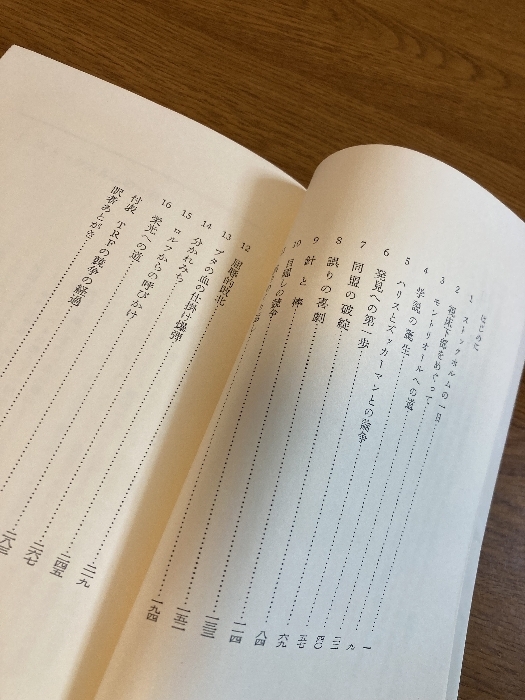 はじめに
1 ストックホルムの一日 一
2 視床下部をめぐって 九
3 モントリオールへの道 二二
4 学説の誕生 四〇
5 ハリス・ズッカーマンとの論争 五七
6 発見への第一歩 六九
7 同盟の破綻 八四
8 誤りの喜劇 一一四
9 針と棒 一三三
10 目隠しの競争 一五一
一九四
12 屈辱的敗北 二一九
13 ブタの血の仕掛け爆弾 二四五
14 分かれみち 二六七
15 ロルフからの呼びかけ
16 栄光への道
付表 TRFの競争の経過
訳者あとがき